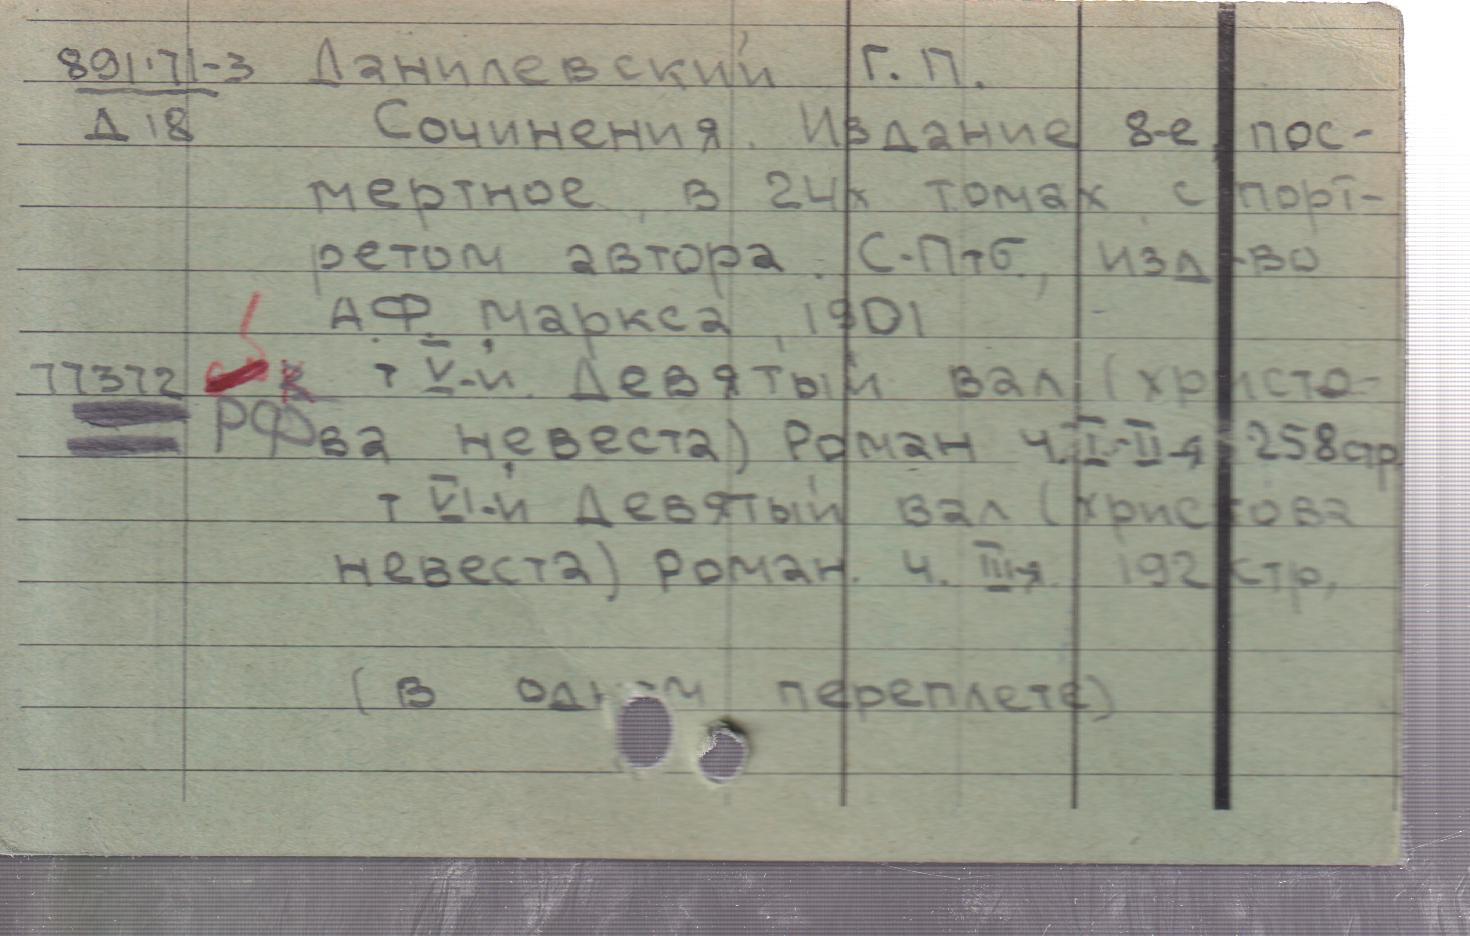 891.71-3 Данилевский Г. П.
Д 18 Сочинения. Издание 8-е, пос-
мертное, в 24х томах, с порт-
ретом автора. С-Птб., изд-во
А.Ф. Маркса, 1901 -
77372 К т V-й. Девятый вал (христо-
РФ ва невеста) Роман ч. I-II-я 258 стр
т VI-й Девятый вал (христова
невеста) Роман. ч. IIIя 192 стр,
(в одном переплете)